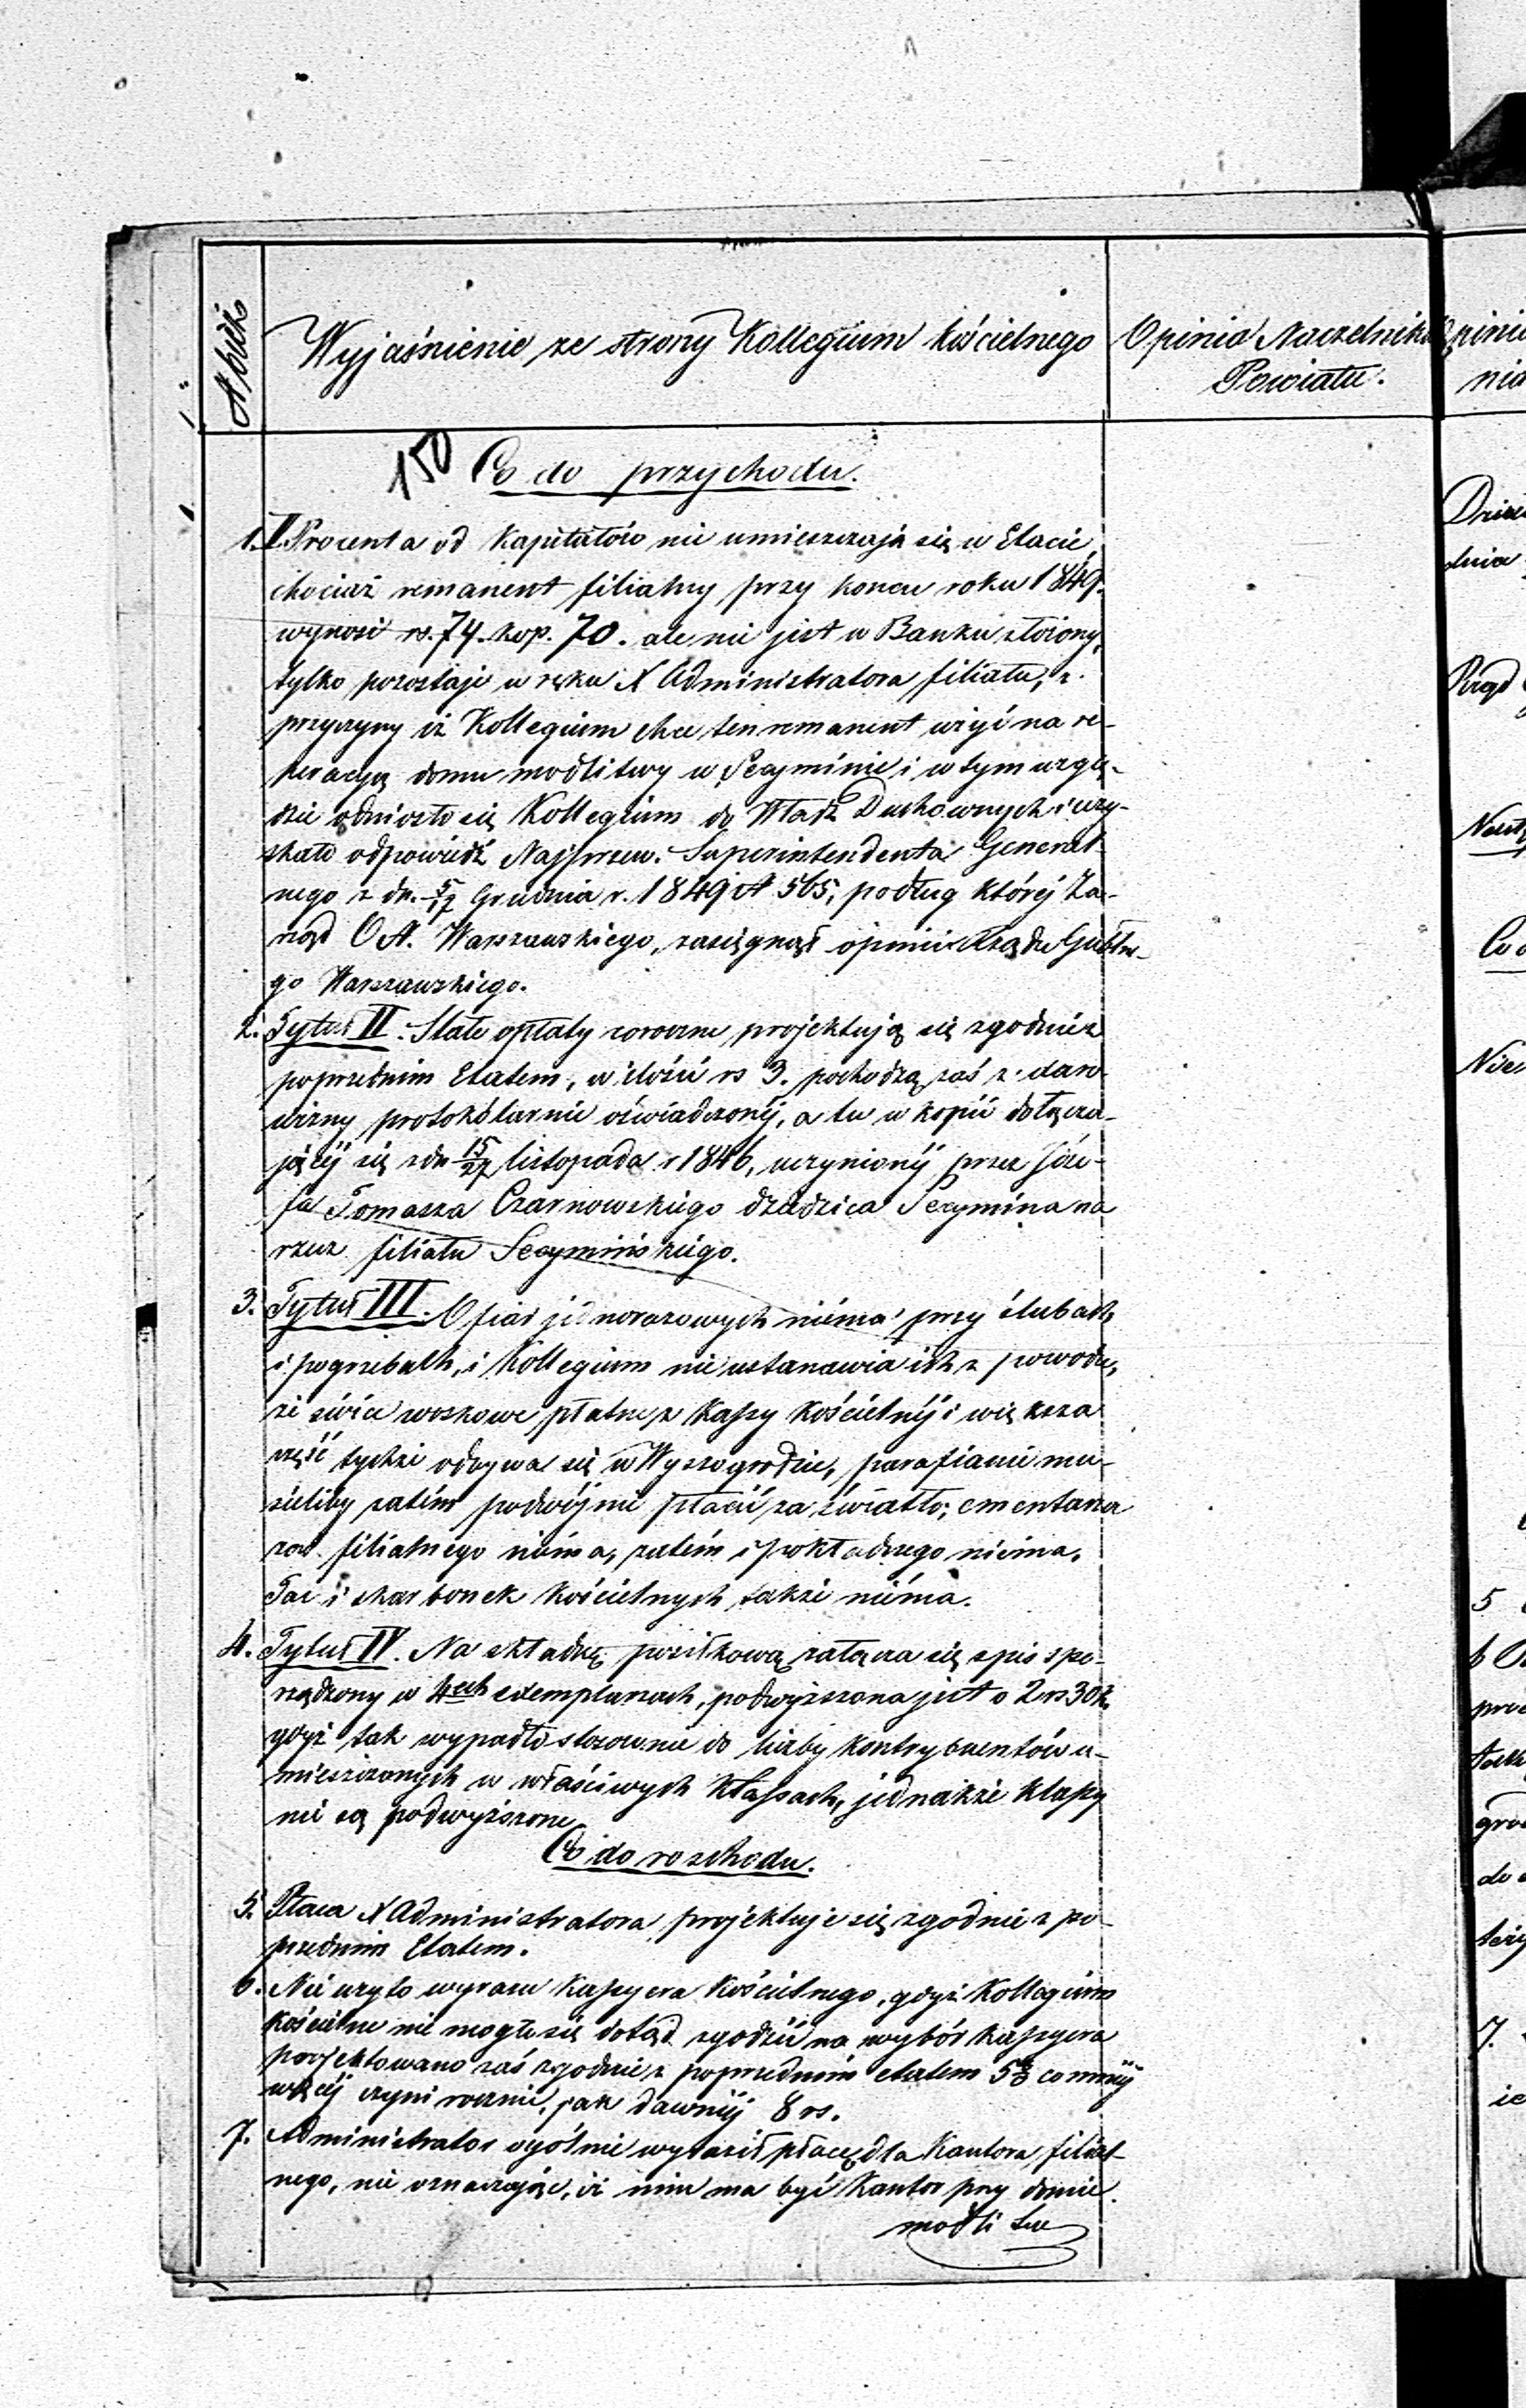 Wyjaśnienie ze strony Kollegium kościelnego
Opinia Naczelnika
Powiatu.
150 Co do przychodu.
1. Procenta od Kapitałów nie umieszczają się w Etacie,
chociaż remanent filialny przy końcu roku 1849.
wynosi rs. 74. kop. 70. ale nie jest w Banku złożony,
tylko pozostaje w ręku X Administratora filiału, z
przyczyny iż Kollegium chce ten remanent użyć na re-
peracyą domu modlitwy w Secyminie i w tym wzglę-
dzie odniosło się Kollegium do Władz Duchownych i uzy-
skało odpowiedź Najprzew. Superintendenta General-
nego z dn. 5/17 Grudnia r. 1849 N 565, podług któréj Za-
rząd O N. Warszawskiego, zasięgnął opinii Rządu Gubln-
go Warszawskiego.
2. Tytuł II. Stałe opłaty coroczne, projektują się zgodnie z
poprzednim Etatem, w ilości rs 3. pochodzą zaś z daro-
wizny protokólarnie oświadczonéj, a tu w kopii dołącza-
jącéj się z dn 15/27 listopada r 1846, uczynionéj przez Józe-
fa Tomasza Czarnowskiego dziedzica Secymina na
rzecz filiału Secymińskiego.
3. Tytuł III. Ofiar jednorazowych niéma przy ślubach
i pogrzebach, i Kollegium nie ustanawia ich z powodu,
że świce woskowe płatne z Kassy Kościelnéj i większa
część tychże odbywa się w Wyszogrodzie, parafianie mu-
sieliby zatém podwójnie płacić za światło; cmentarza
zaś filialnego niéma, zatém i pokładnego niéma.
Tac i skarbonek kościelnych także niéma.
4. Tytuł IV. Na składkę posiłkową załącza się spis spo-
rządzony w 4ech exemplarzach, podwyższona jest o 2 rs 30 k.
gdyż tak wypadło stosownie do liczby kontrybuentów u-
mieszczonych w właściwych klassach, jednakże klassy
nie są podwyższone.
Co do rozchodu.
5. Płaca X Administratora projektuje się zgodnie z po-
przednim Etatem.
6. Nie użyto wyrazu Kassyera Kościelnego, gdyż Kollegium
Kościelne nie mogło się dotąd zgodzić na wybór Kassyera
projektowano zaś zgodnie z poprzednim etatem 5% co mniéj
więcéj czyni rocznie, jak dawniéj 8 rs.
7. Administrator ogólnie wyraził płacę dla Kantora filial-
nego, nie oznaczając, iż nim ma być Kantor przy domie
modlitwy